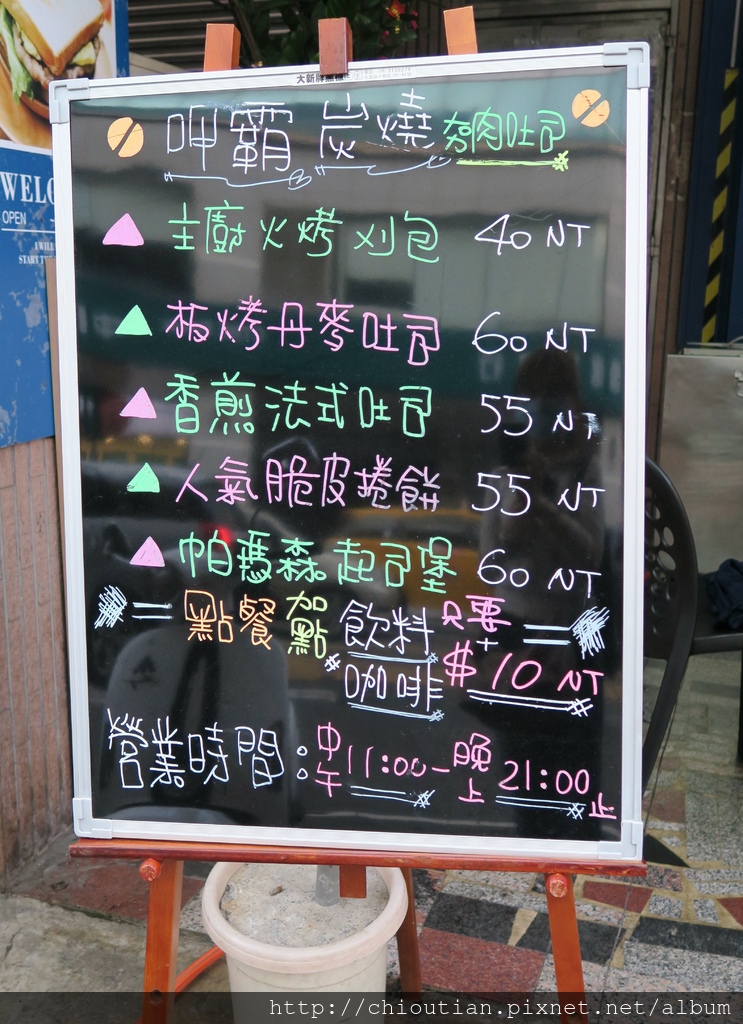 WELC
OPEN
I WILL
START T
呷霸 炭燒 夯肉吐司
主廚火烤刈包 40 NT
板烤丹麥吐司 60 NT
香煎法式吐司 55 NT
人氣脆皮捲餅 55 NT
帕瑪森起司堡 60 NT
= 點餐 加點 飲料 咖啡 只要 + $10 NT =
營業時間:中午11:00-晚上21:00止
http://chioutian.pixnet.net/album